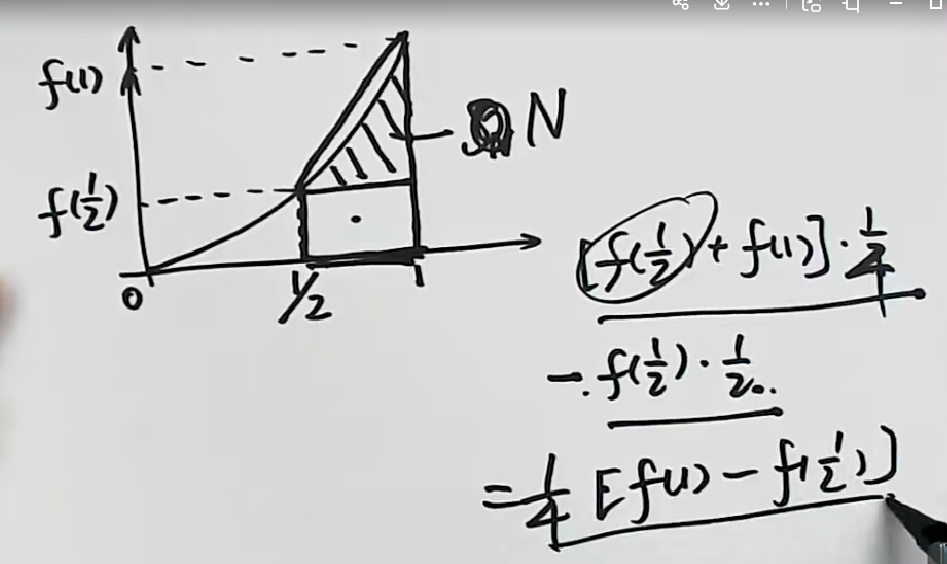 f(1)
N
f(1/2)
0
1/2
1
[f(1/2)+f(1)]·1/4
-·f(1/2)·1/2..
=1/4[f(1)-f(1/2)]